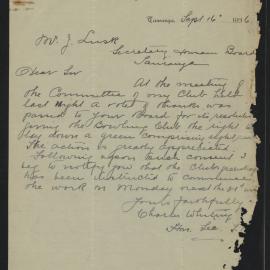 Tauranga Sept 16th 1936
Mr J. Lusk
Secretary Domain Board
Tauranga
Dear Sir
At the meeting of
the Committee of my Club held
last night a vote of thanks was
passed to your Board for its resolution
giving the Bowling Club the right to
lay down a green comprising eight rinks
The action is greatly appreciated.
Following upon such consent I
beg to notify you that the Club's
has been instructed to commence
the work on Monday next the 21st
Yours faithfully
Charles
Hon. Sec